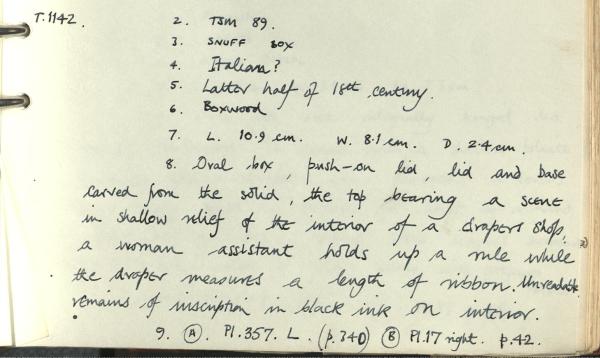 T.1142.
2. TSM 89.
3. SNUFF BOX
4. Italian?
5. Latter half of 18th century.
6. Boxwood
7. L. 10.9 cm. W. 8.1 cm. D. 2.4 cm.
8. Oval box, push-on lid, lid and base
carved from the solid, the top bearing a scene
in shallow relief of the interior of a drapers shop,
a woman assistant holds up a rule while
the draper measures a length of ribbon. Unreadable
remains of inscription in black ink on interior.
9. (A). Pl.357. L. (p.340) (B) Pl.17 right. p.42.